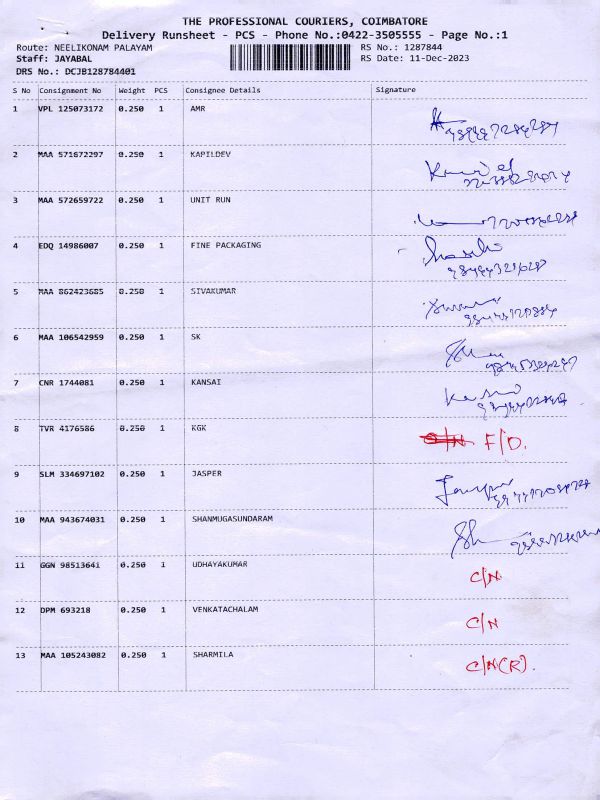 THE PROFESSIONAL COURIERS, COIMBATORE
Delivery Runsheet - PCS - Phone No.:0422-3505555 - Page No.:1
Route: NEELIKONAM PALAYAM RS No.: 1287844
Staff: JAYABAL RS Date: 11-Dec-2023
DRS No.: DCJB128784401
S No Consignment No Weight PCS Consignee Details Signature
1 VPL 125073172 0.250 1 AMR
2 MAA 571672297 0.250 1 KAPILDEV
3 MAA 572659722 0.250 1 UNIT RUN
4 EDQ 14986007 0.250 1 FINE PACKAGING
5 MAA 862423685 0.250 1 SIVAKUMAR
6 MAA 106542959 0.250 1 SK
7 CNR 1744081 0.250 1 KANSAI
8 TVR 4176586 0.250 1 KGK F/D.
9 SLM 334697102 0.250 1 JASPER
10 MAA 943674031 0.250 1 SHANMUGASUNDARAM
11 GGN 98513641 0.250 1 UDHAYAKUMAR C/N
12 DPM 693218 0.250 1 VENKATACHALAM C/N
13 MAA 105243082 0.250 1 SHARMILA C/N(R).